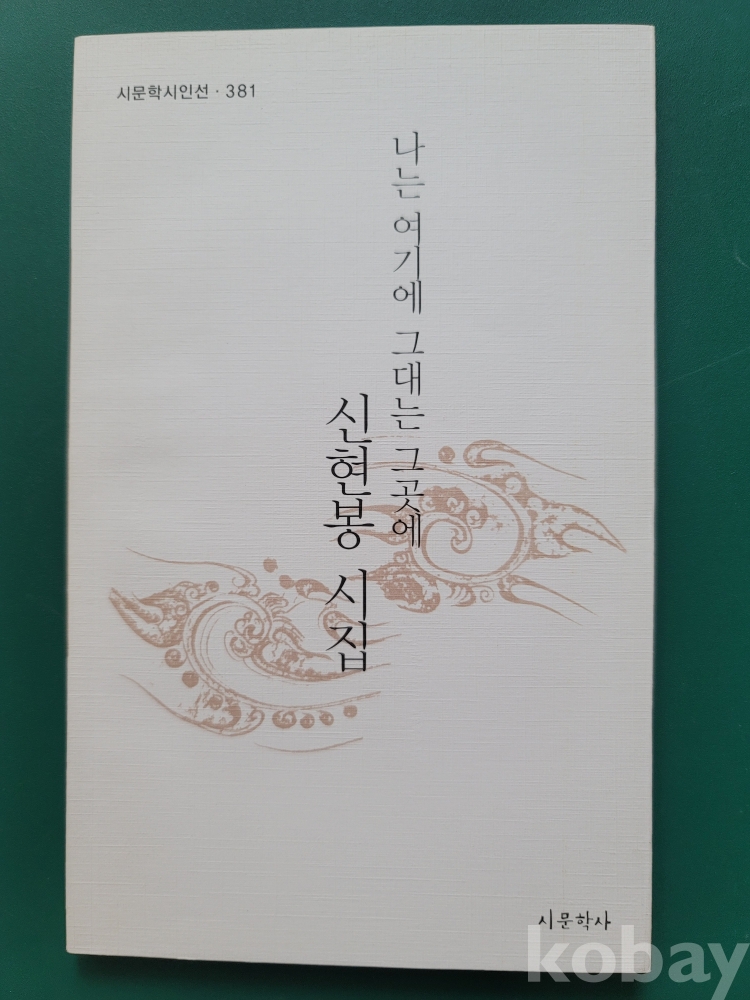 시문학시인선 · 381
나는 여기에 그대는 그곳에
신현봉 시집
시문학사
kobay